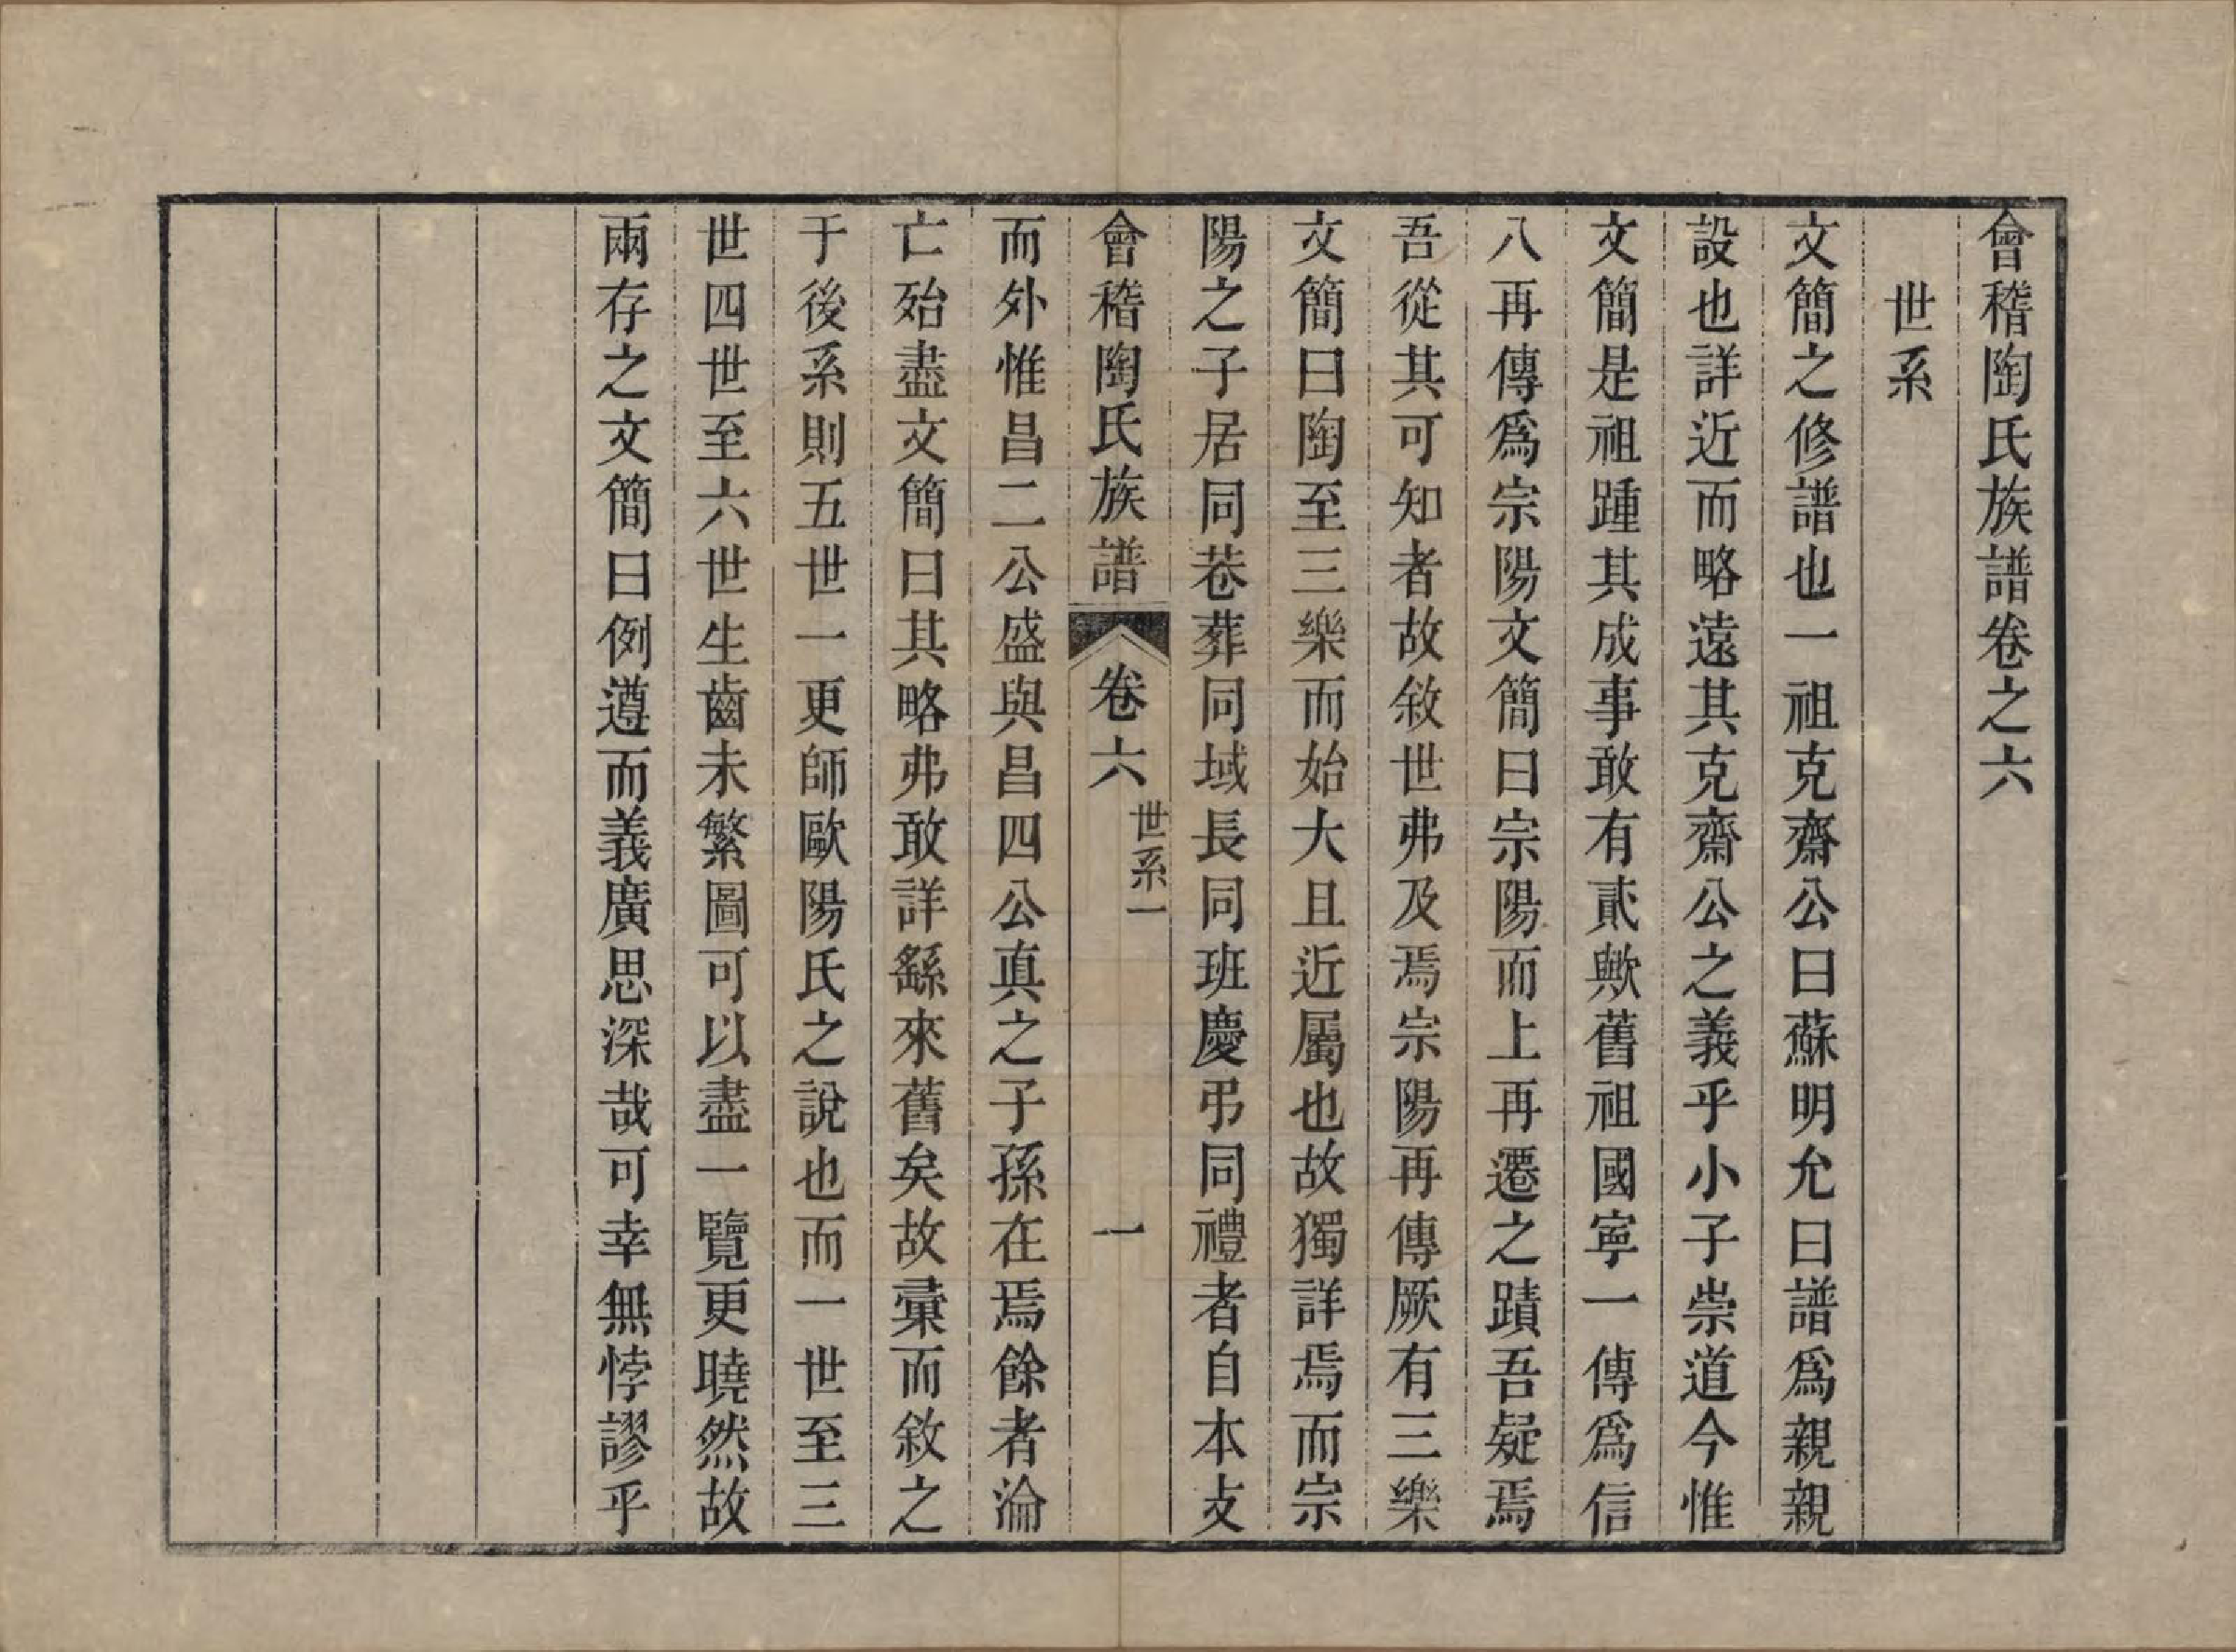 會稽陶氏族譜卷之六
世系
文簡之修譜也一祖克齋公曰蘇明允曰譜爲親親
設也詳近而略遠其克齋公之義乎小子崇道今惟
文簡是祖踵其成事敢有貳歟舊祖國寧一傳爲信
八再傳爲宗陽文簡曰宗陽而上再遷之蹟吾疑焉
吾從其可知者故敘世弗及焉宗陽再傳厥有三樂
文簡曰陶至三樂而始大且近屬也故獨詳焉而宗
陽之子居同巷葬同域長同班慶弔同禮者自本支
會稽陶氏族譜 卷六 世系一 一
而外惟昌二公盛與昌四公真之子孫在焉餘者淪
亡殆盡文簡曰其略弗敢詳繇來舊矣故彙而敘之
于後系則五世一更師歐陽氏之說也而一世至三
世四世至六世生齒未繁圖可以盡一覽更曉然故
兩存之文簡曰例遵而義廣思深哉可幸無悖謬乎